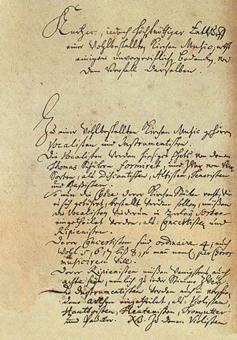 Kurtzer, iedoch höchstnöthiger Entwurff
einer wohlbestallten Kirchen Music; nebst
einigem unvorgreiflichen Bedencken von
dem Verfall derselben.
Zu einer wohlbestellten Kirchen Music gehören
Vocalisten und Instrumentisten.
Die Vocalisten werden hiesiges Ohrts von denen
Thomas Schülern formiret, und zwar von vier
Sorten, als Discantisten, Altisten, Tenoristen,
und Bassisten.
So nun die Chöre derer Kirchen Stücken recht, wie
es sich gebühret, bestellt werden sollen, müßen
die Vocalisten wiederum in 2erley Sorten
eingetheilet werden, als: Concertisten und
Ripienisten.
Derer Concertisten sind ordinaire 4; auch
wohl 5, 6, 7 biß 8; so man per Choros
musiciren will.
Derer Ripienisten müßen wenigstens auch
achte seyn, nemlich zu ieder Stimme zwey.
Die Instrumentisten werden auch in
Arthen eingetheilet, als: Violisten,
Hautboisten, Fleutenisten, Trompetter
und Paucker. NB. Zu denen Violisten